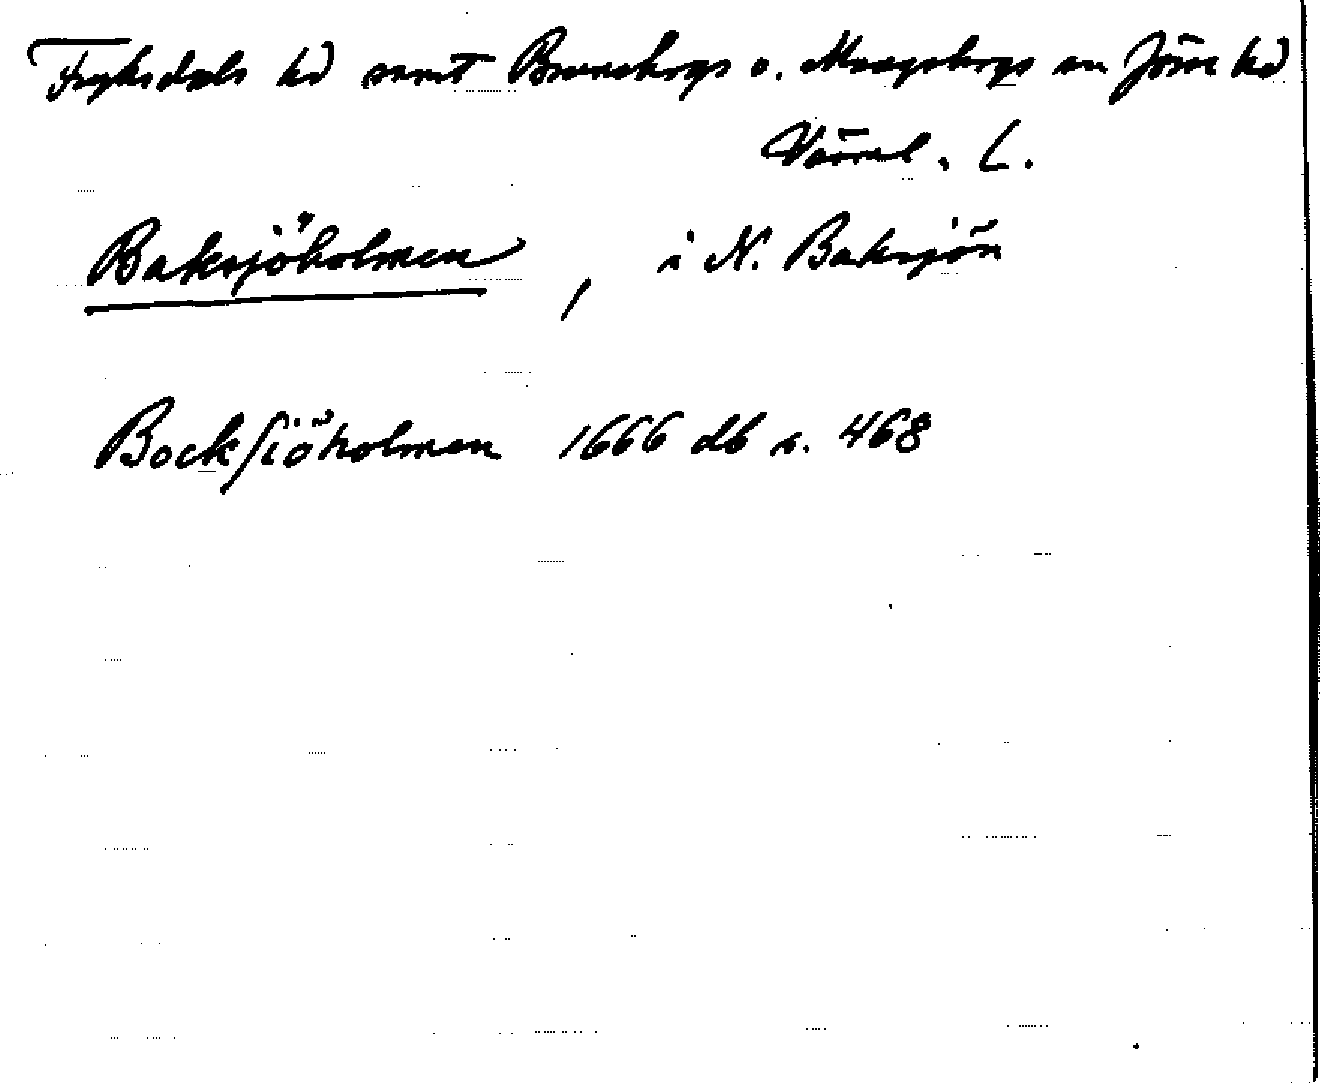 Fryksdals hd samt Brunskogs o. Mangskogs sn Jösse hd
Värml. L.
Baksjöholmen, i N. Baksjön
Bocksiöholmen 1666 db s. 468